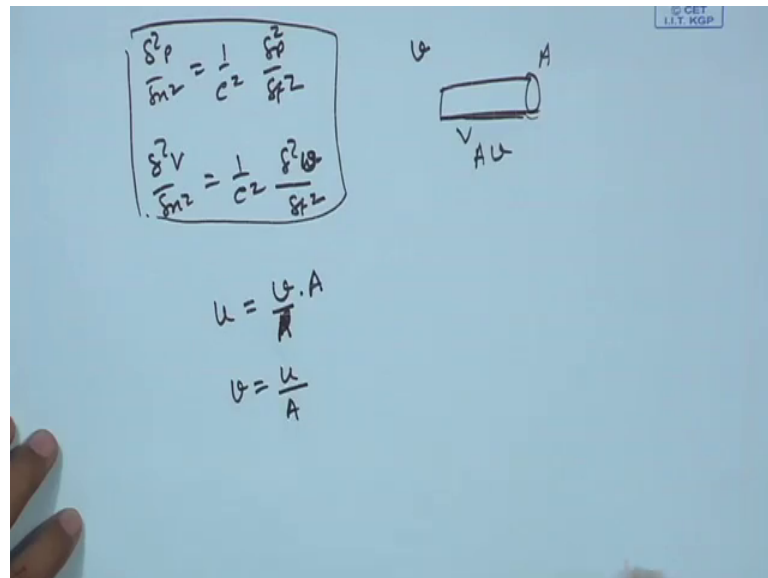 © CET
I.I.T. KGP
δ²p/δx² = 1/c² δ²p/δt²
δ²V/δx² = 1/c² δ²v/δt²
v
A
V
Av
u = v/A . A
v = u/A